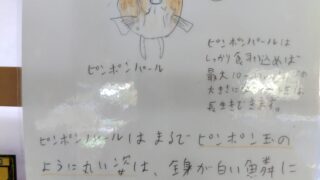 ピンポンパール
ピンポンパールは
しっかり食
最大10
大きさに
長生きできます。
ピンポンパールは まるで ピンポン玉の
ように丸い姿は、全身が白い鱗に